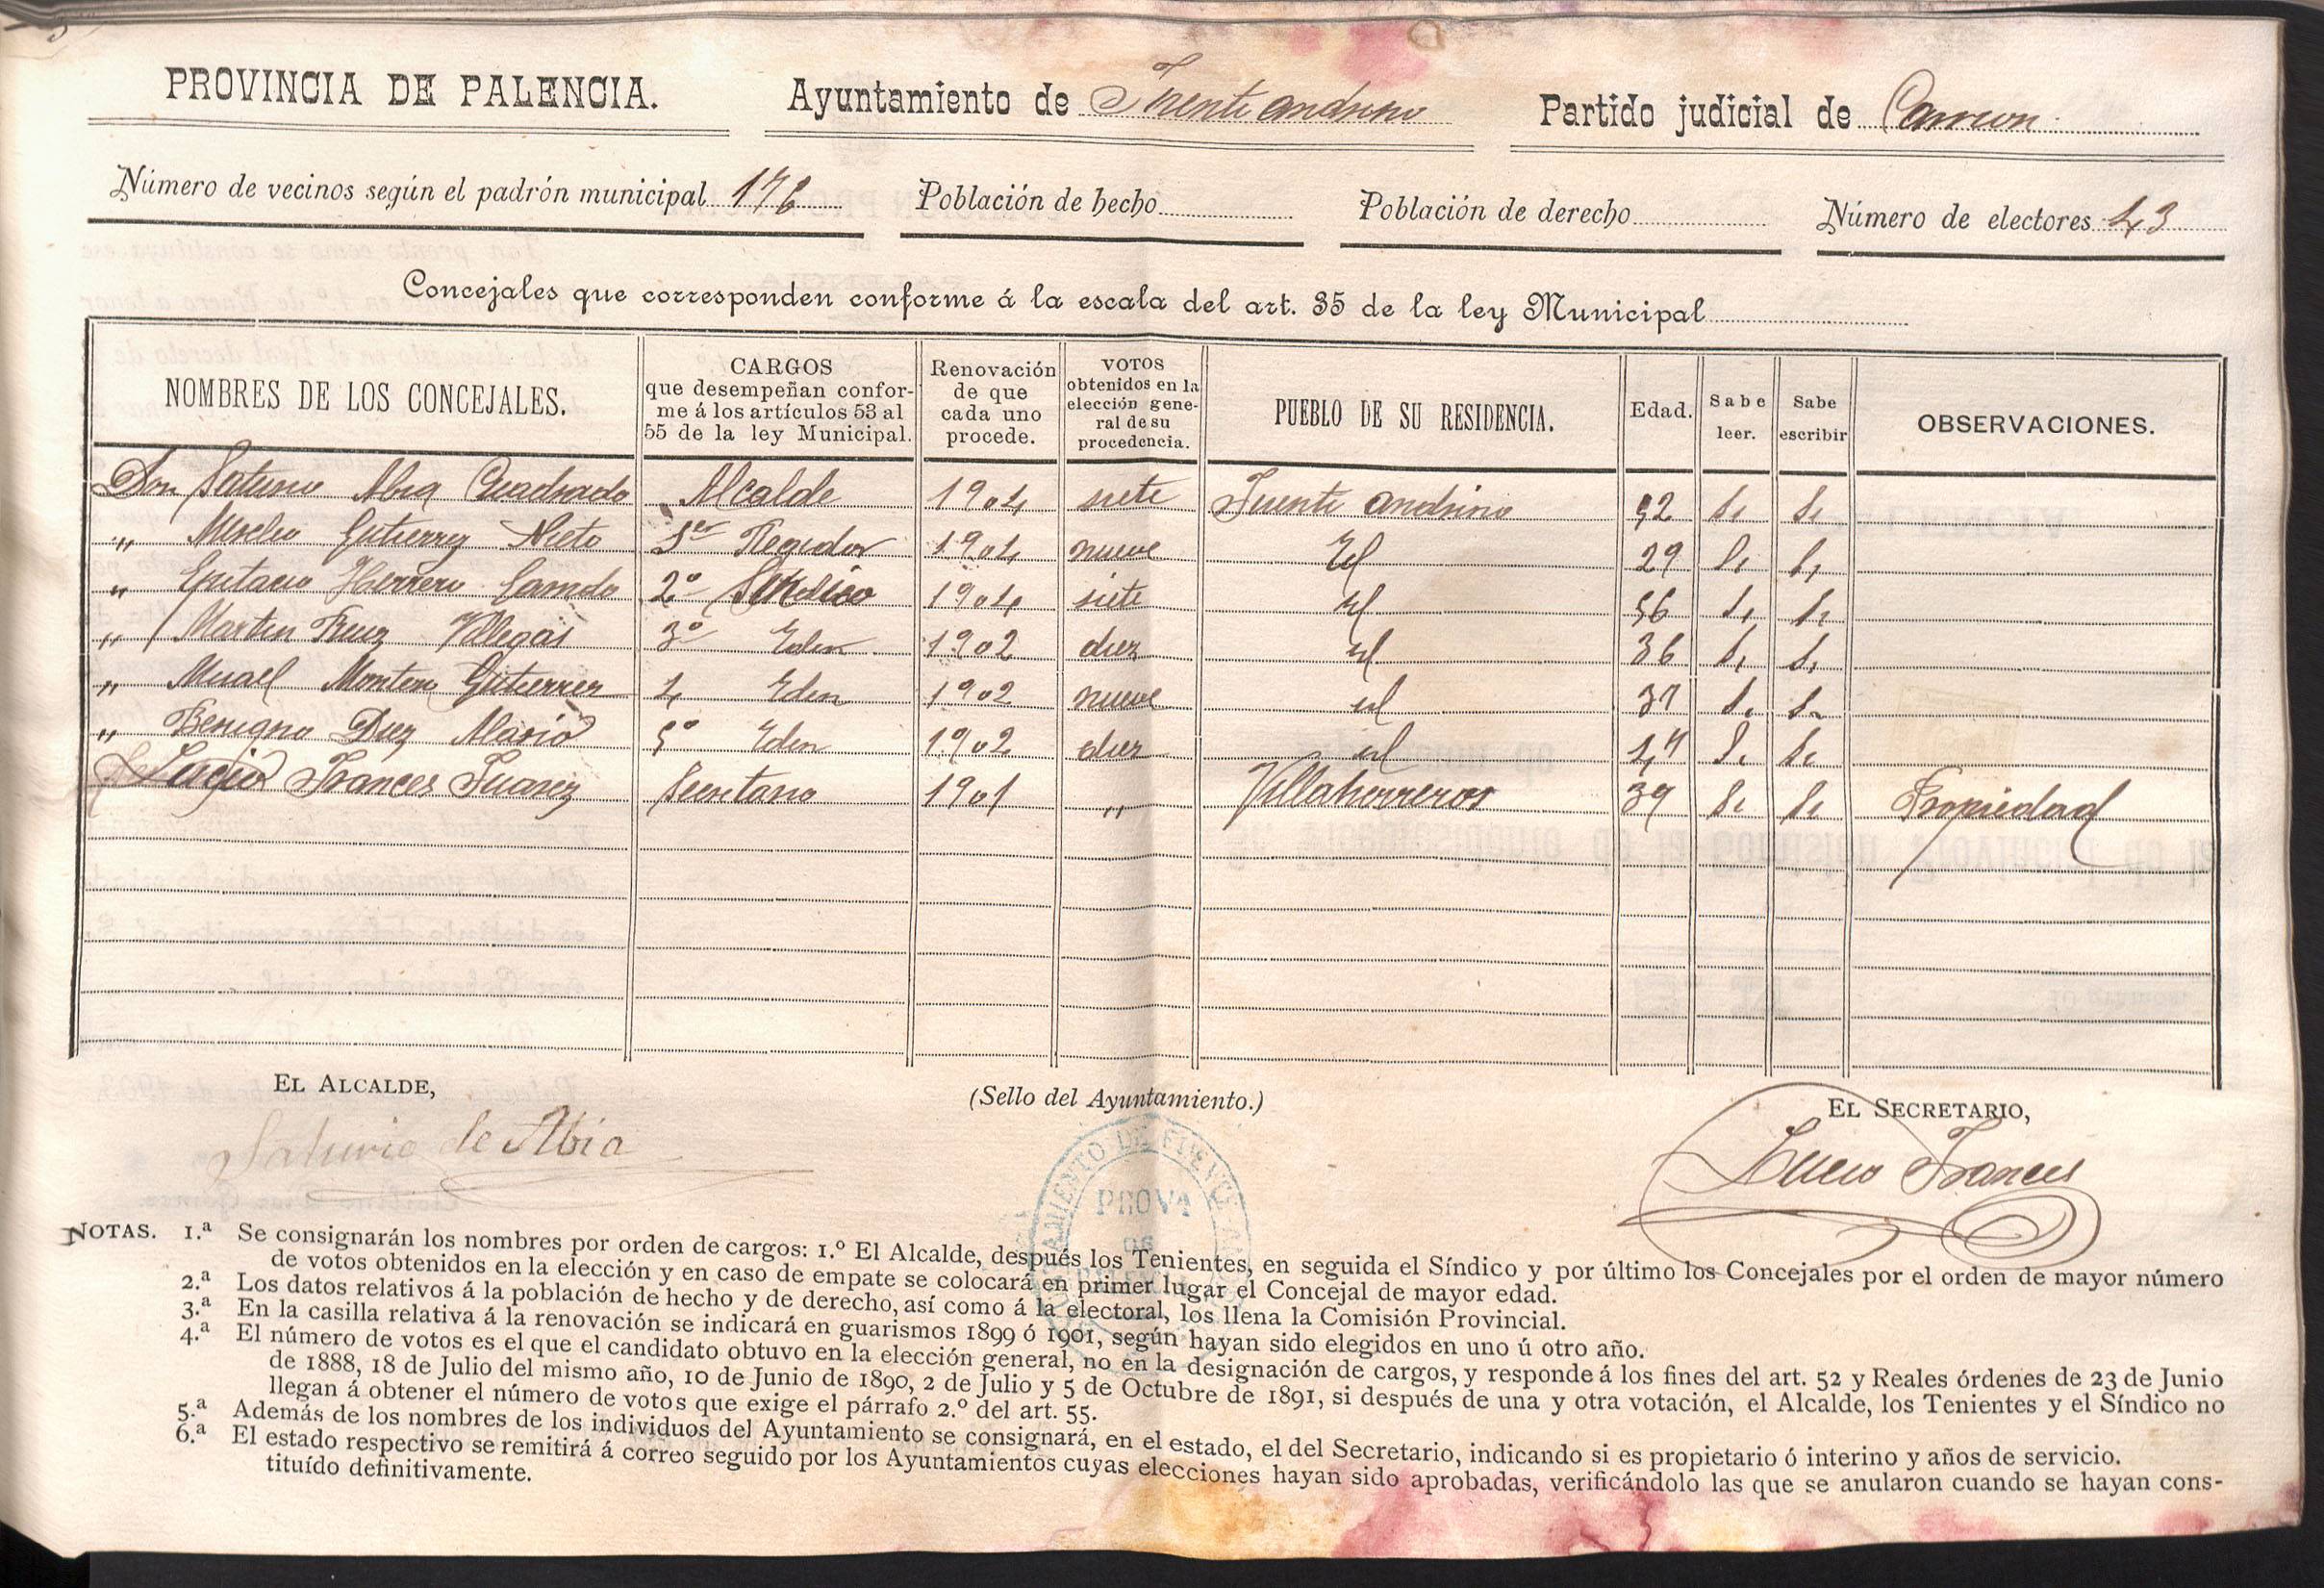 PROVINCIA DE PALENCIA. Ayuntamiento de Fuente andrino Partido judicial de Carrion
Número de vecinos según el padrón municipal 176 Población de hecho Población de derecho Número de electores 43
Concejales que corresponden conforme á la escala del art. 35 de la ley Municipal
NOMBRES DE LOS CONCEJALES. CARGOS que desempeñan conforme á los artículos 53 al 55 de la ley Municipal. Renovación de que cada uno procede. VOTOS obtenidos en la elección general de su procedencia. PUEBLO DE SU RESIDENCIA. Edad. Sabe leer. Sabe escribir OBSERVACIONES.
Don Saturio Abia Cuadrado Alcalde 1904 siete Fuente andrino 52 Si Si
" Gutierrez Nieto 1er Regidor 1904 nueve id 29 Si Si
" Eustacio Herrero 2º Sindico 1904 siete id 56 Si Si
" Martin Villegas 3º Eden 1902 diez id 36 Si Si
" Montero Gutierrez 4 Eden 1902 nueve id Si Si
" Benigno Diez 5º Eden 1902 diez id Si Si
Lucio Frances Suarez Secretario 1901 " Villaherreros 39 Si Si Propiedad
EL ALCALDE, (Sello del Ayuntamiento.) EL SECRETARIO,
Saturio de Abia
Lucio Frances
PROVA
DE
NOTAS. 1.ª Se consignarán los nombres por orden de cargos: 1.º El Alcalde, después los Tenientes, en seguida el Síndico y por último los Concejales por el orden de mayor número
de votos obtenidos en la elección y en caso de empate se colocará en primer lugar el Concejal de mayor edad.
2.ª Los datos relativos á la población de hecho y de derecho, así como á la electoral, los llena la Comisión Provincial.
3.ª En la casilla relativa á la renovación se indicará en guarismos 1899 ó 1901, según hayan sido elegidos en uno ú otro año.
4.ª El número de votos es el que el candidato obtuvo en la elección general, no en la designación de cargos, y responde á los fines del art. 52 y Reales órdenes de 23 de Junio
de 1888, 18 de Julio del mismo año, 10 de Junio de 1890, 2 de Julio y 5 de Octubre de 1891, si después de una y otra votación, el Alcalde, los Tenientes y el Síndico no
llegan á obtener el número de votos que exige el párrafo 2.º del art. 55.
5.ª Además de los nombres de los individuos del Ayuntamiento se consignará, en el estado, el del Secretario, indicando si es propietario ó interino y años de servicio.
6.ª El estado respectivo se remitirá á correo seguido por los Ayuntamientos cuyas elecciones hayan sido aprobadas, verificándolo las que se anularon cuando se hayan cons-
tituído definitivamente.